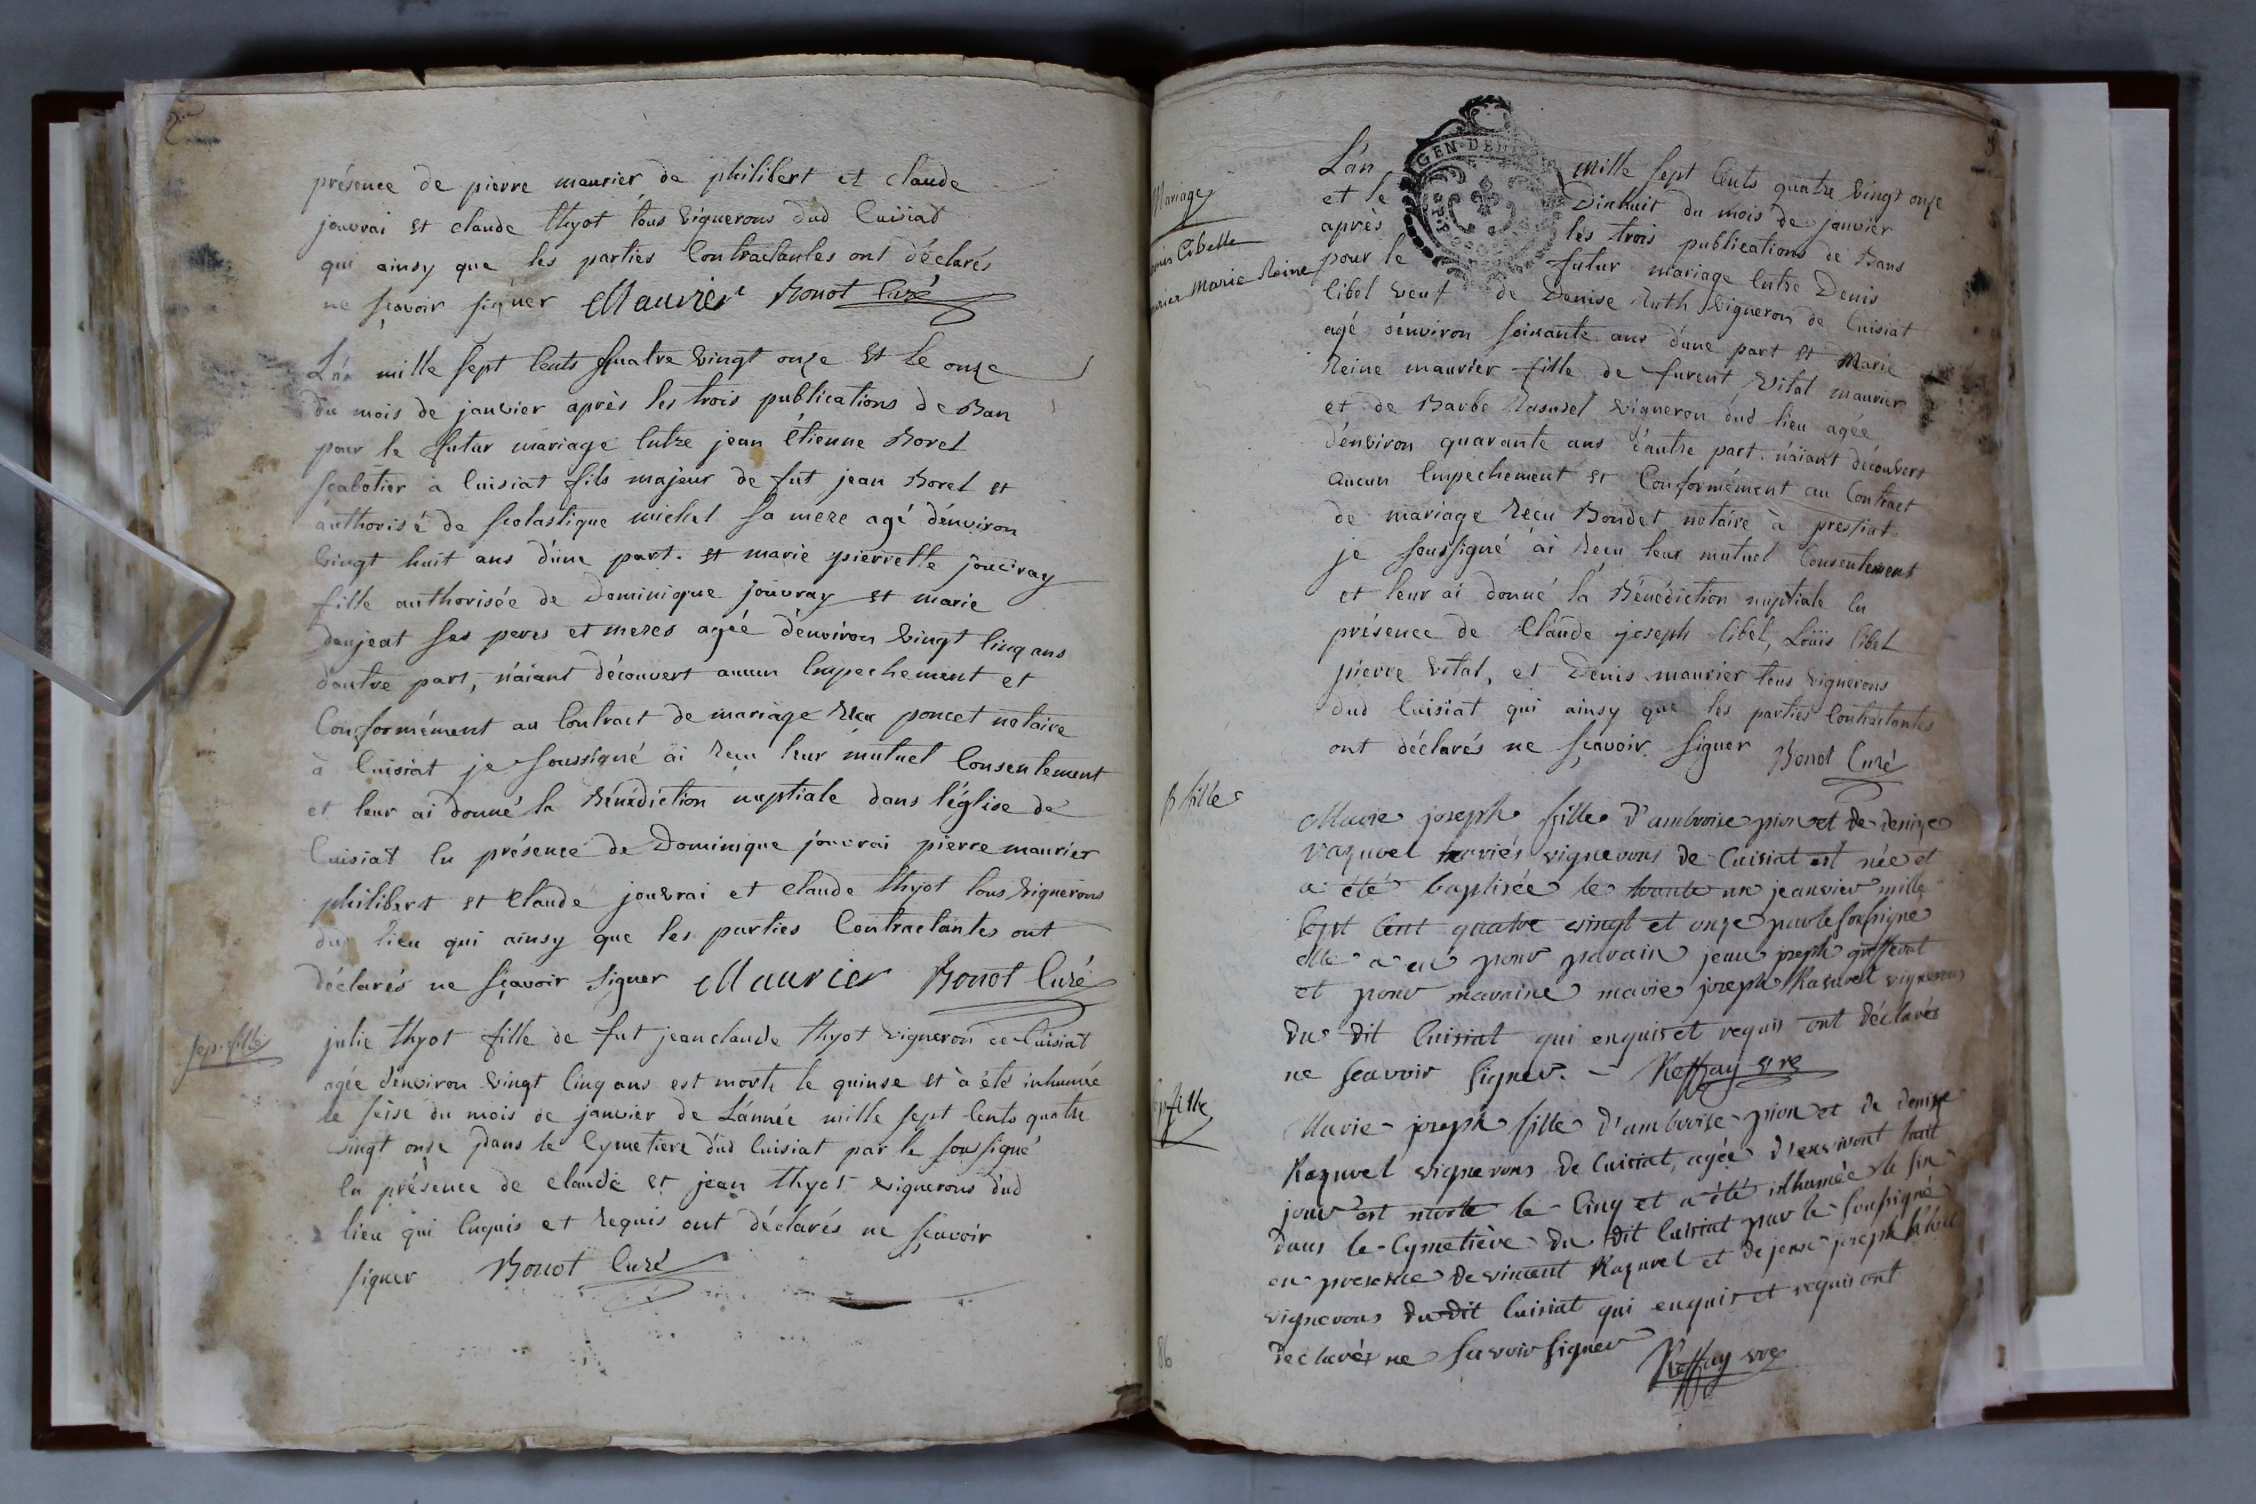 présence de pierre maurier de philibert et claude
jouvrai et claude thyot tous vignerons dud Cuisiat
qui ainsy que les parties Contractantes ont déclarés
ne sçavoir signer Maurier Bonot Curé
L'án mille sept Cents quatre vingt onze et le onze
du mois de janvier après les trois publications de Ban
pour le futur mariage Entre jean étienne Borel
sabotier à Cuisiat fils majeur de fut jean Borel et
authorisé de scolastique michel sa mere agé d'environ
vingt huit ans d'une part. et marie pierrette jouvray
fille authorisée de Dominique jouvray et marie
danjeat ses peres et meres agée d'environ vingt Cinq ans
d'autre part, n'aiant découvert aucun Empechement et
Conformément au Contract de mariage Reçu poncet notaire
à Cuisiat je soussigné ai reçu leur mutuel Consentement
et leur ai donné la Bénédiction nuptiale dans l'église de
Cuisiat En présence de Dominique jouvrai pierre maurier
philibert et Claude jouvrai et Claude thyot tous vignerons
dud lieu qui ainsy que les parties Contractantes ont
déclarés ne sçavoir signer Maurier Bonot Curé
sep. fille
julie thyot fille de fut jean claude thyot vigneron de Cuisiat
agée d'environ vingt Cinq ans est morte le quinse et à été inhumée
le seise du mois de janvier de L'année mille sept Cents quatre
vingt onze dans le Cymetiere dud Cuisiat par le soussigné
En présence de claude et jean thyot vignerons dud
lieu qui Enquis et Requis ont déclarés ne sçavoir
signer Bonot Curé
Mariage
Cibelle
Marie Reine
GEN. DE
L'án mille sept Cents quatre vingt onze
et le Dixhuit du mois de janvier
après les trois publications de Bans
pour le futur mariage Entre Denis
Cibel veuf de Denise Ruth vigneron de Cuisiat
agé d'environ soixante ans d'une part et Marie
Reine maurier fille de furent Vital maurier
et de Barbe Rasurel vigneron dud lieu agée
d'environ quarante ans d'autre part. n'aiant découvert
aucun Empechement et Conformément au Contract
de mariage Reçu Boudet notaire à pressiat
je soussigné ai reçu leur mutuel Consentement
et leur ai donné la Bénédiction nuptiale En
présence de Claude joseph Cibel, Loüis Cibel
pierre Vital, et Denis maurier tous vignerons
dud Cuisiat qui ainsy que les parties Contractantes
ont déclarés ne sçavoir signer Bonot Curé
B fille
Marie joseph fille d'ambroise pion et de denize
Razurel mariés vignerons de Cuisiat est née et
a été baptisée le trante un jeanvier mille
sept Cent quatre vingt et onze par le sousigné
elle a eu pour parain jean joseph
et pour maraine marie joseph Rasurel vignerons
du dit Cuisiat qui enquis et requis ont déclarés
ne scavoir signer. – Reffay vre
sep fille
Marie joseph fille d'ambroise pion et de denize
Razurel vignerons de Cuisiat, agée d'environt huit
jour est morte le Cinq et a été inhumée le six
dans le Cymetière du dit Cuisiat par le sousigné
en presence de vincent Razurel et de jean joseph
vignerons du dit Cuisiat qui enquis et requis ont
declarés ne savoir signer Reffay vre
86